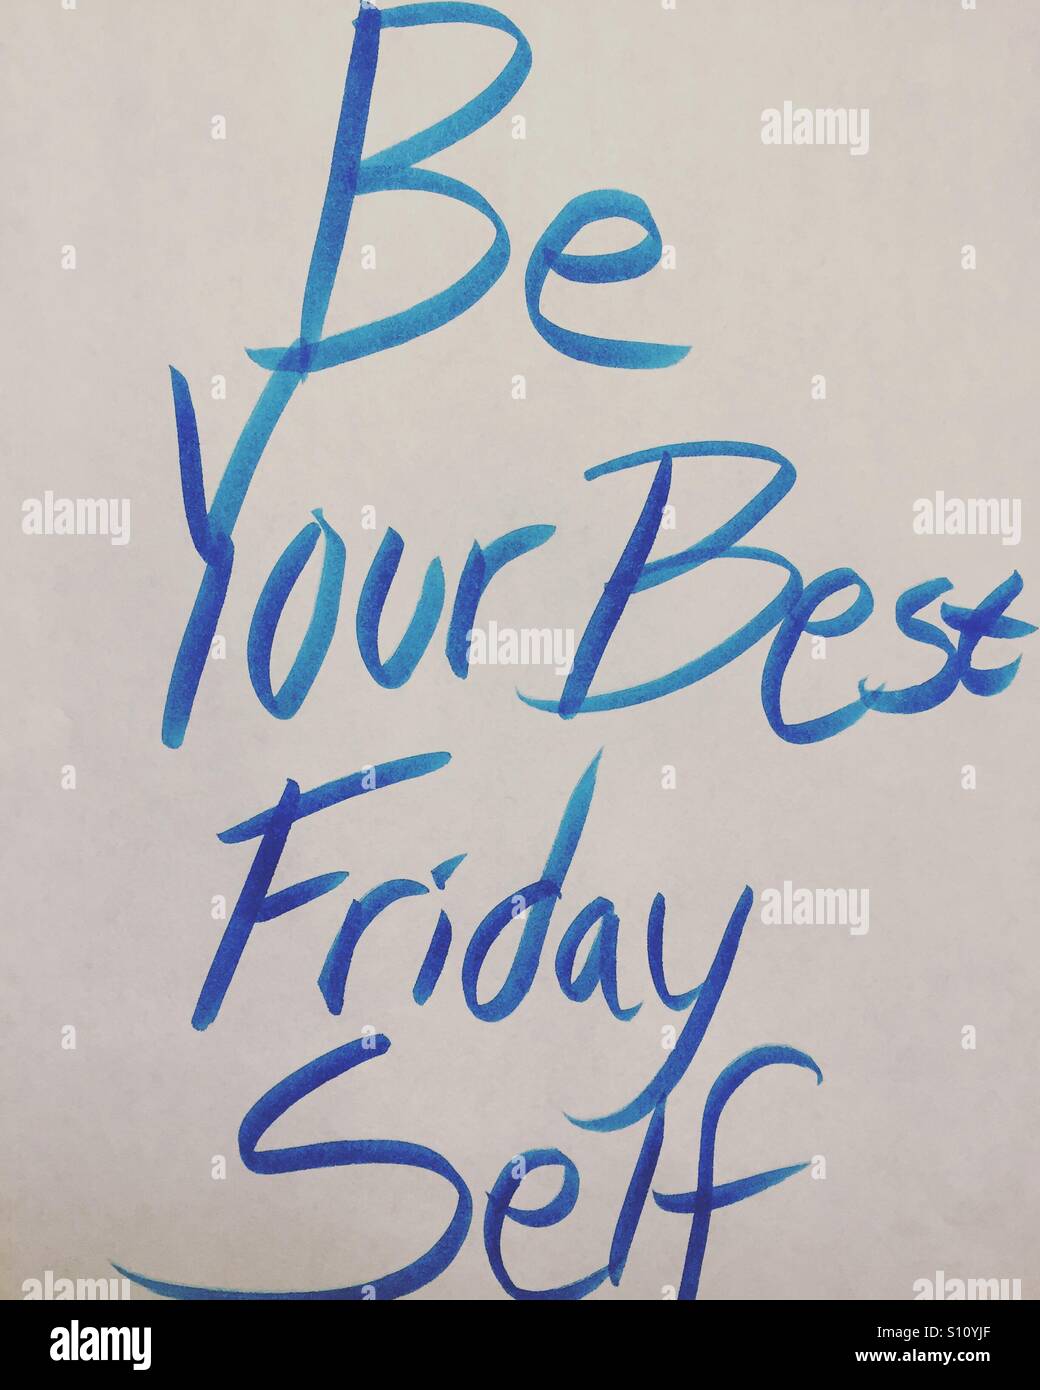 Be
Your Best
Friday
Self
alamy
alamy
alamy
alamy
alamy
alamy
alamy
alamy
Image ID: S10YJF
www.alamy.com